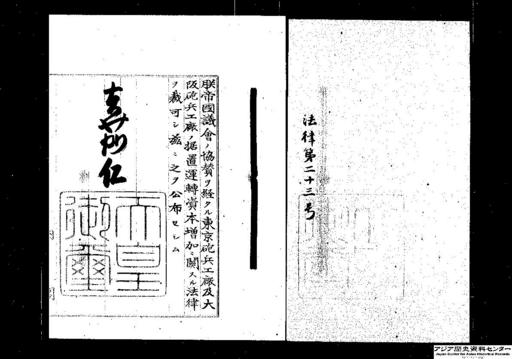 法律第二十三号
朕帝國議會ノ協賛ヲ経タル東京砲兵工廠及大
阪砲兵工廠ノ据置運轉資本増加ニ關スル法律
ヲ裁可シ茲ニ之ヲ公布セシム
嘉仁
天皇
御璽
アジア歴史資料センター
Japan Center for Asian Historical Records